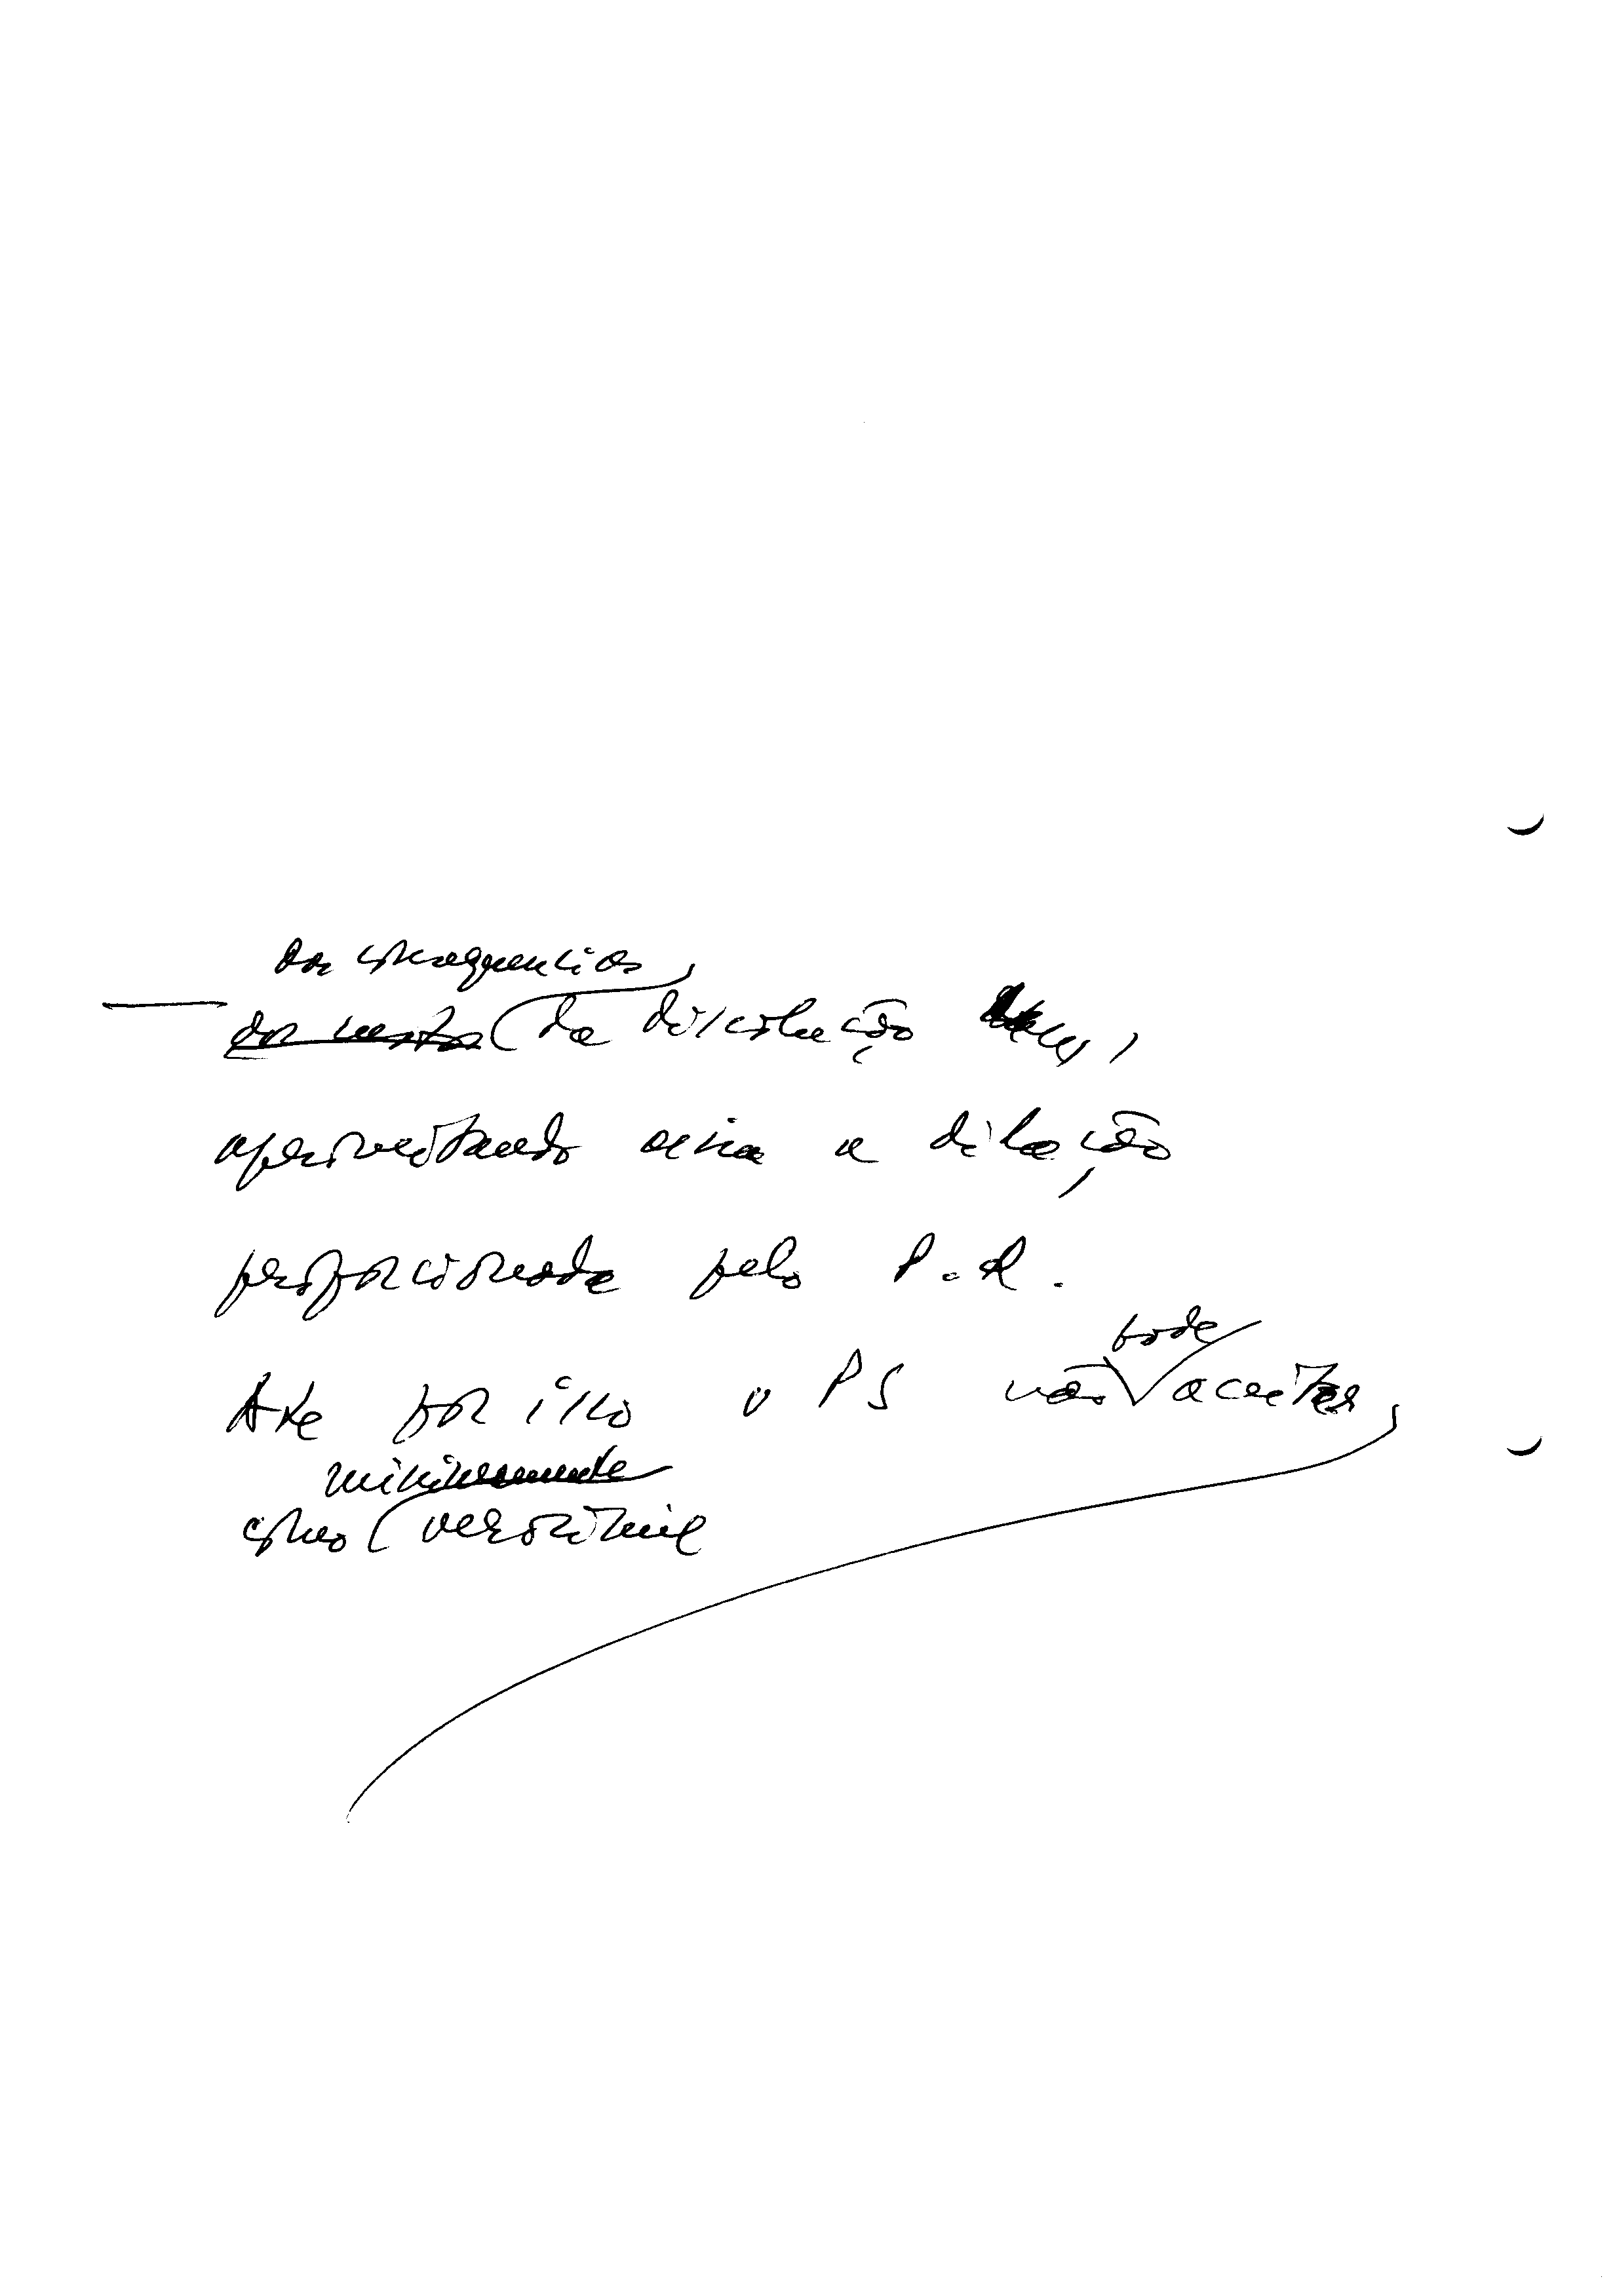 das consequencias
da dissolução
aproveitando assim a dilação
proporcionada pelo P.R.
Até por isso o PS não pode aceitar,
minimamente
como verosímil